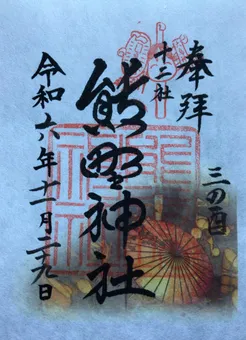 奉拝
三の酉
十二社
熊野神社
令和六年十一月二十九日